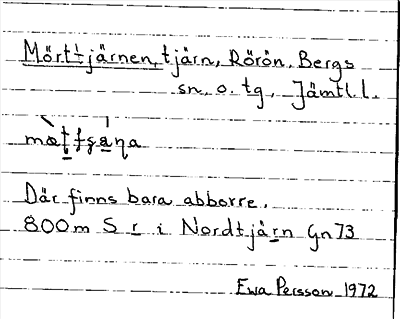 Mörttjärnen, tjärn, Rörön, Bergs
sn. o. tg, Jämtl. l.
Där finns bara abborre.
800m S r i Nordtjärn Gn73
Ewa Persson 1972